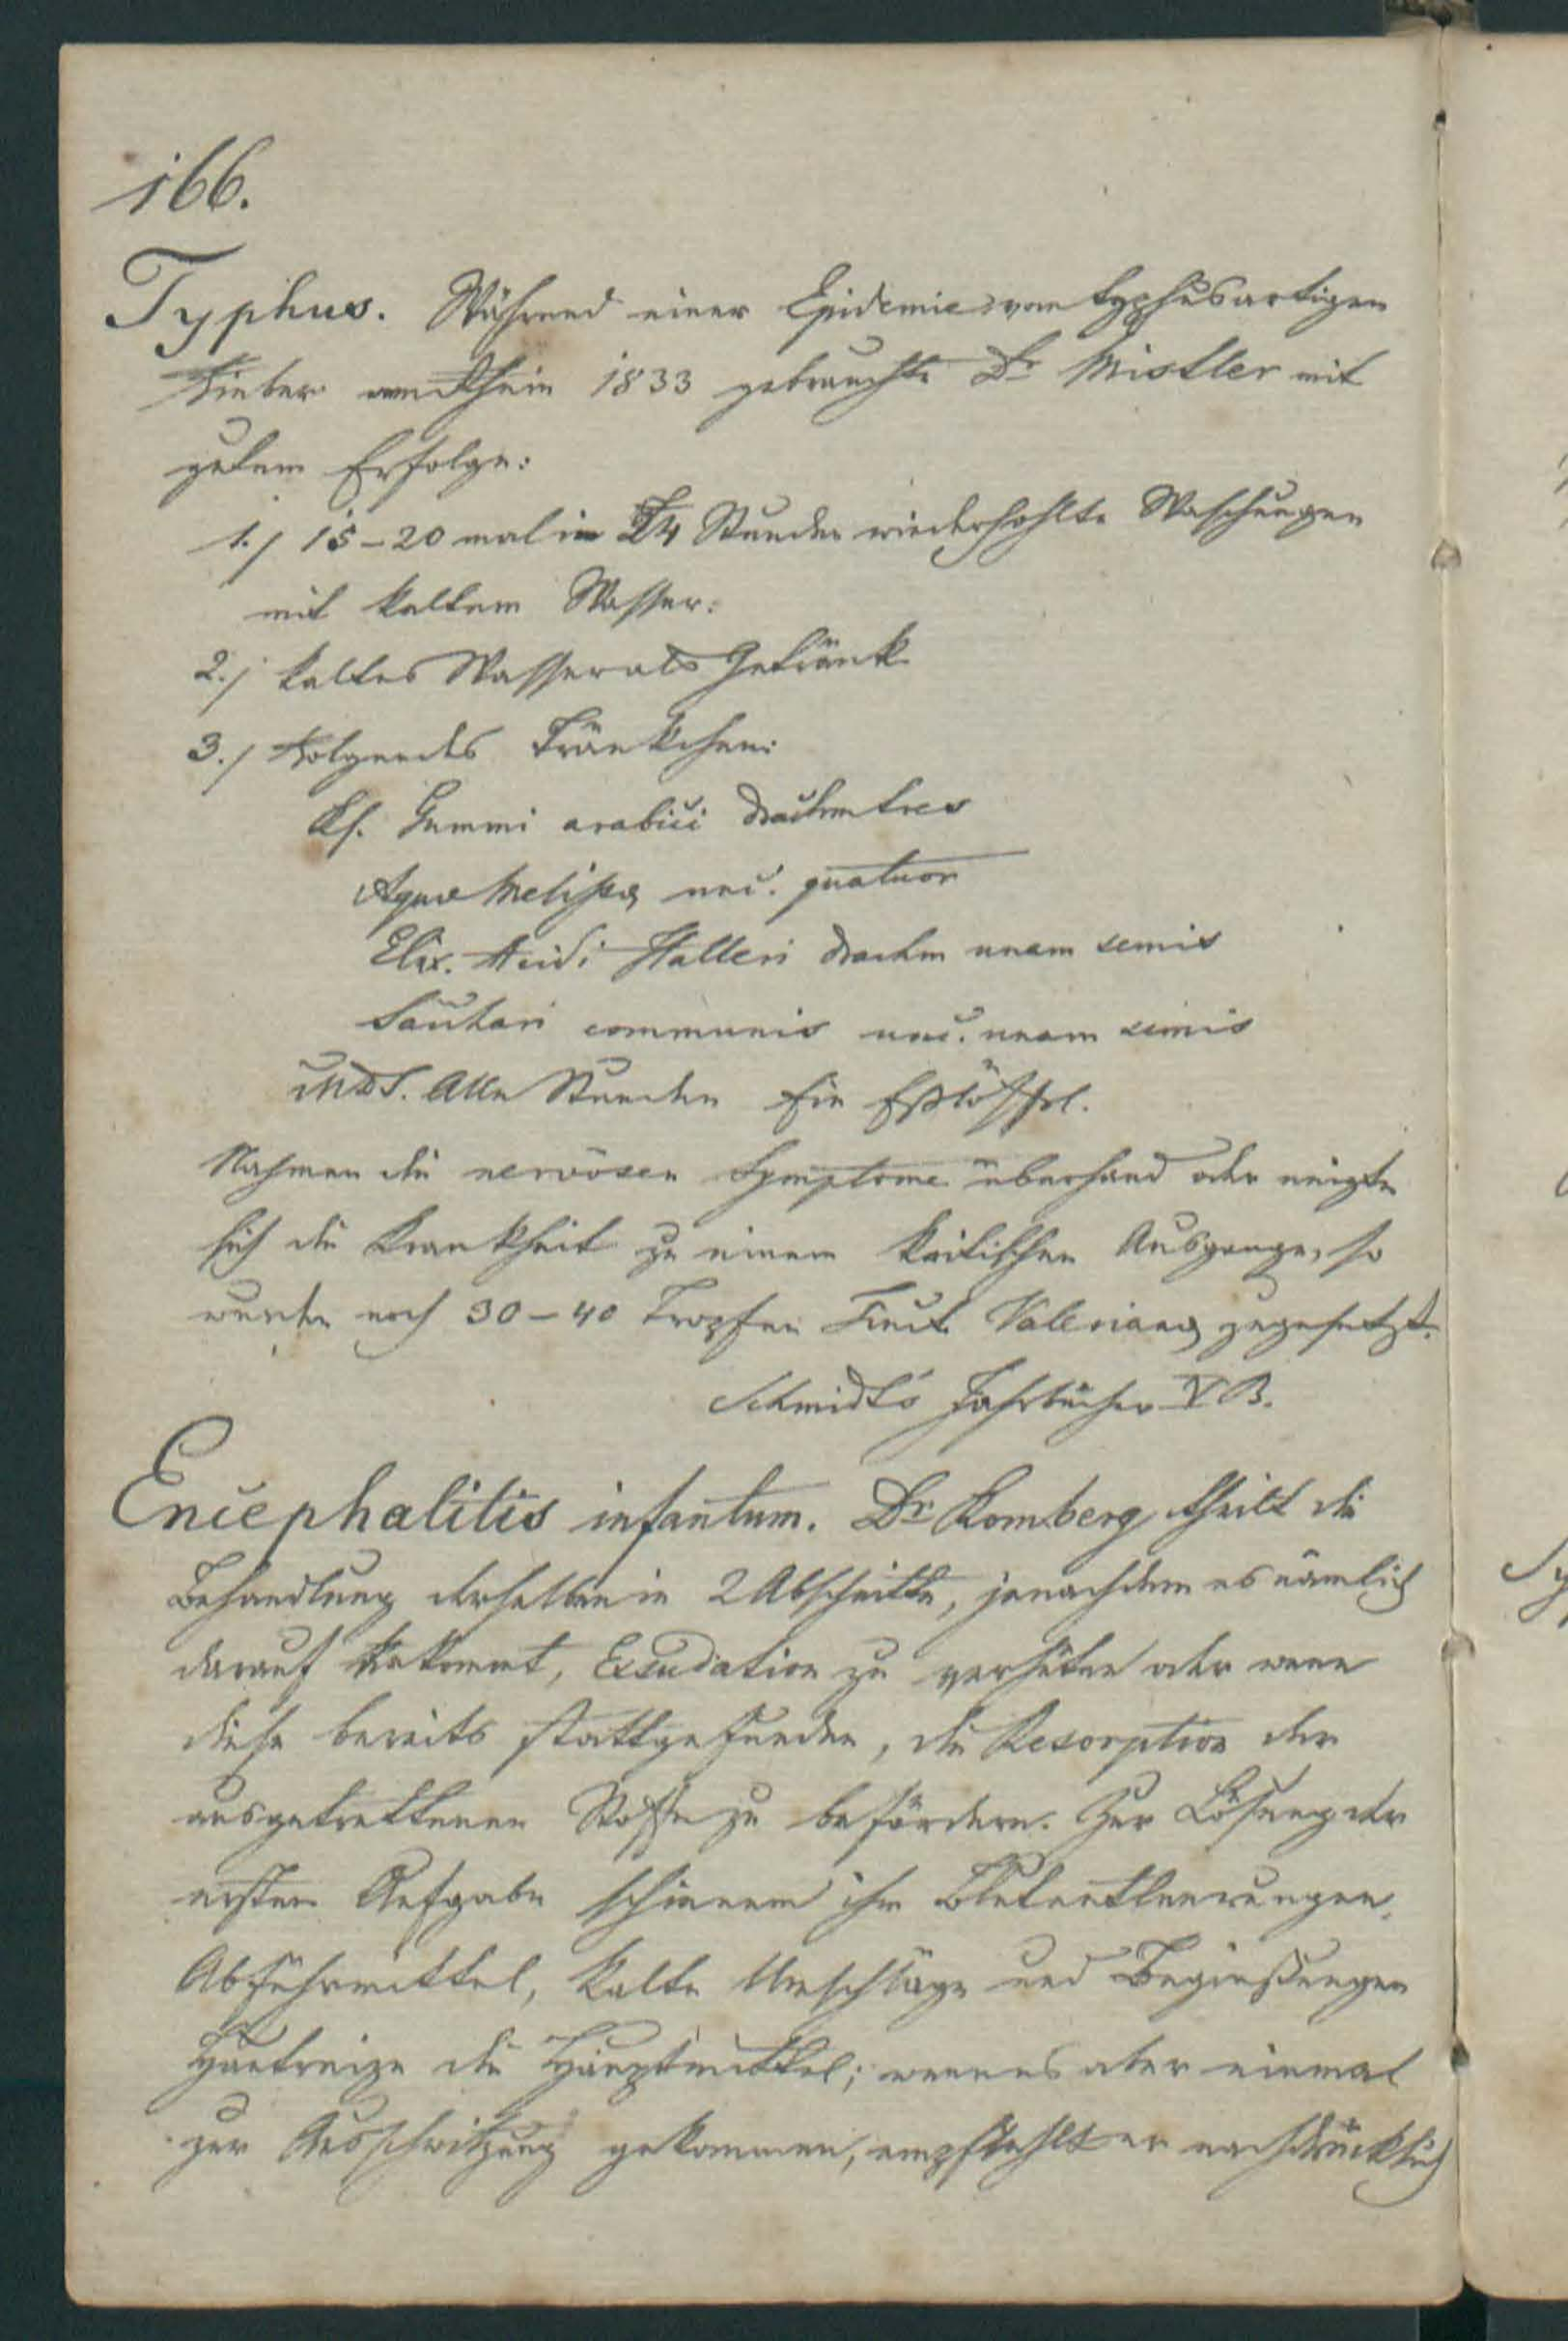 166.
Typhus. Während einer Epidemie von typhusartigen
Fieber am Rhein 1833 gebrauchte Dr Mistler mit
gutem Erfolge:
1./ 15-20 mal in 24 Stunden wiederhohlte Waschungen
mit kaltem Wasser:
2./ kaltes Wasser als Getränk
3./ Folgendes Tränkchen:
Rf. Gummi arabici drachm tres
Aquæ Melissæ unc. quatuor
Elix. Acidi Halleri drachm unam semis
Sachari communis unc. unam semis
MDS. Alle Stunden Ein Eßlöffel.
Nahmen die nervösen Symptome überhand oder neigte
sich die Krankheit zu einem kritischen Ausgange, so
wurde noch 30-40 Tropfen Tinct. Valerianæ zugesetzt.
Schmidt's Jahrbücher V B.
Encephalitis infantum. Dr Romberg theilt die
Behandlung derselben in 2 Abschnitte, jenachdem es nämlich
darauf ankommt, Exsudation zu verhüten oder wenn
diese bereits stattgefunden, die Resorption der
ausgetrettenen Stoffe zu befördern. Zur Lösung der
ersten Aufgabe schienen ihm Blutentleerungen,
Abführmittel, kalte Umschläge und Begießungen
Hautreize die Hauptmittel; wenn es aber einmal
zur Ausschwitzung gekommen, empfiehlt er nachdrücklich
Sy